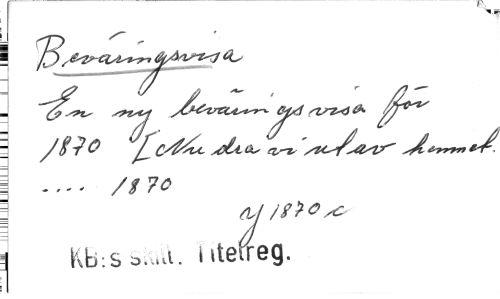 Beväringsvisa
En ny beväringsvisa för
1870 [Nu dra vi ut av hemmet.
.... 1870
Y 1870 c
KB:s skill. Titelreg.